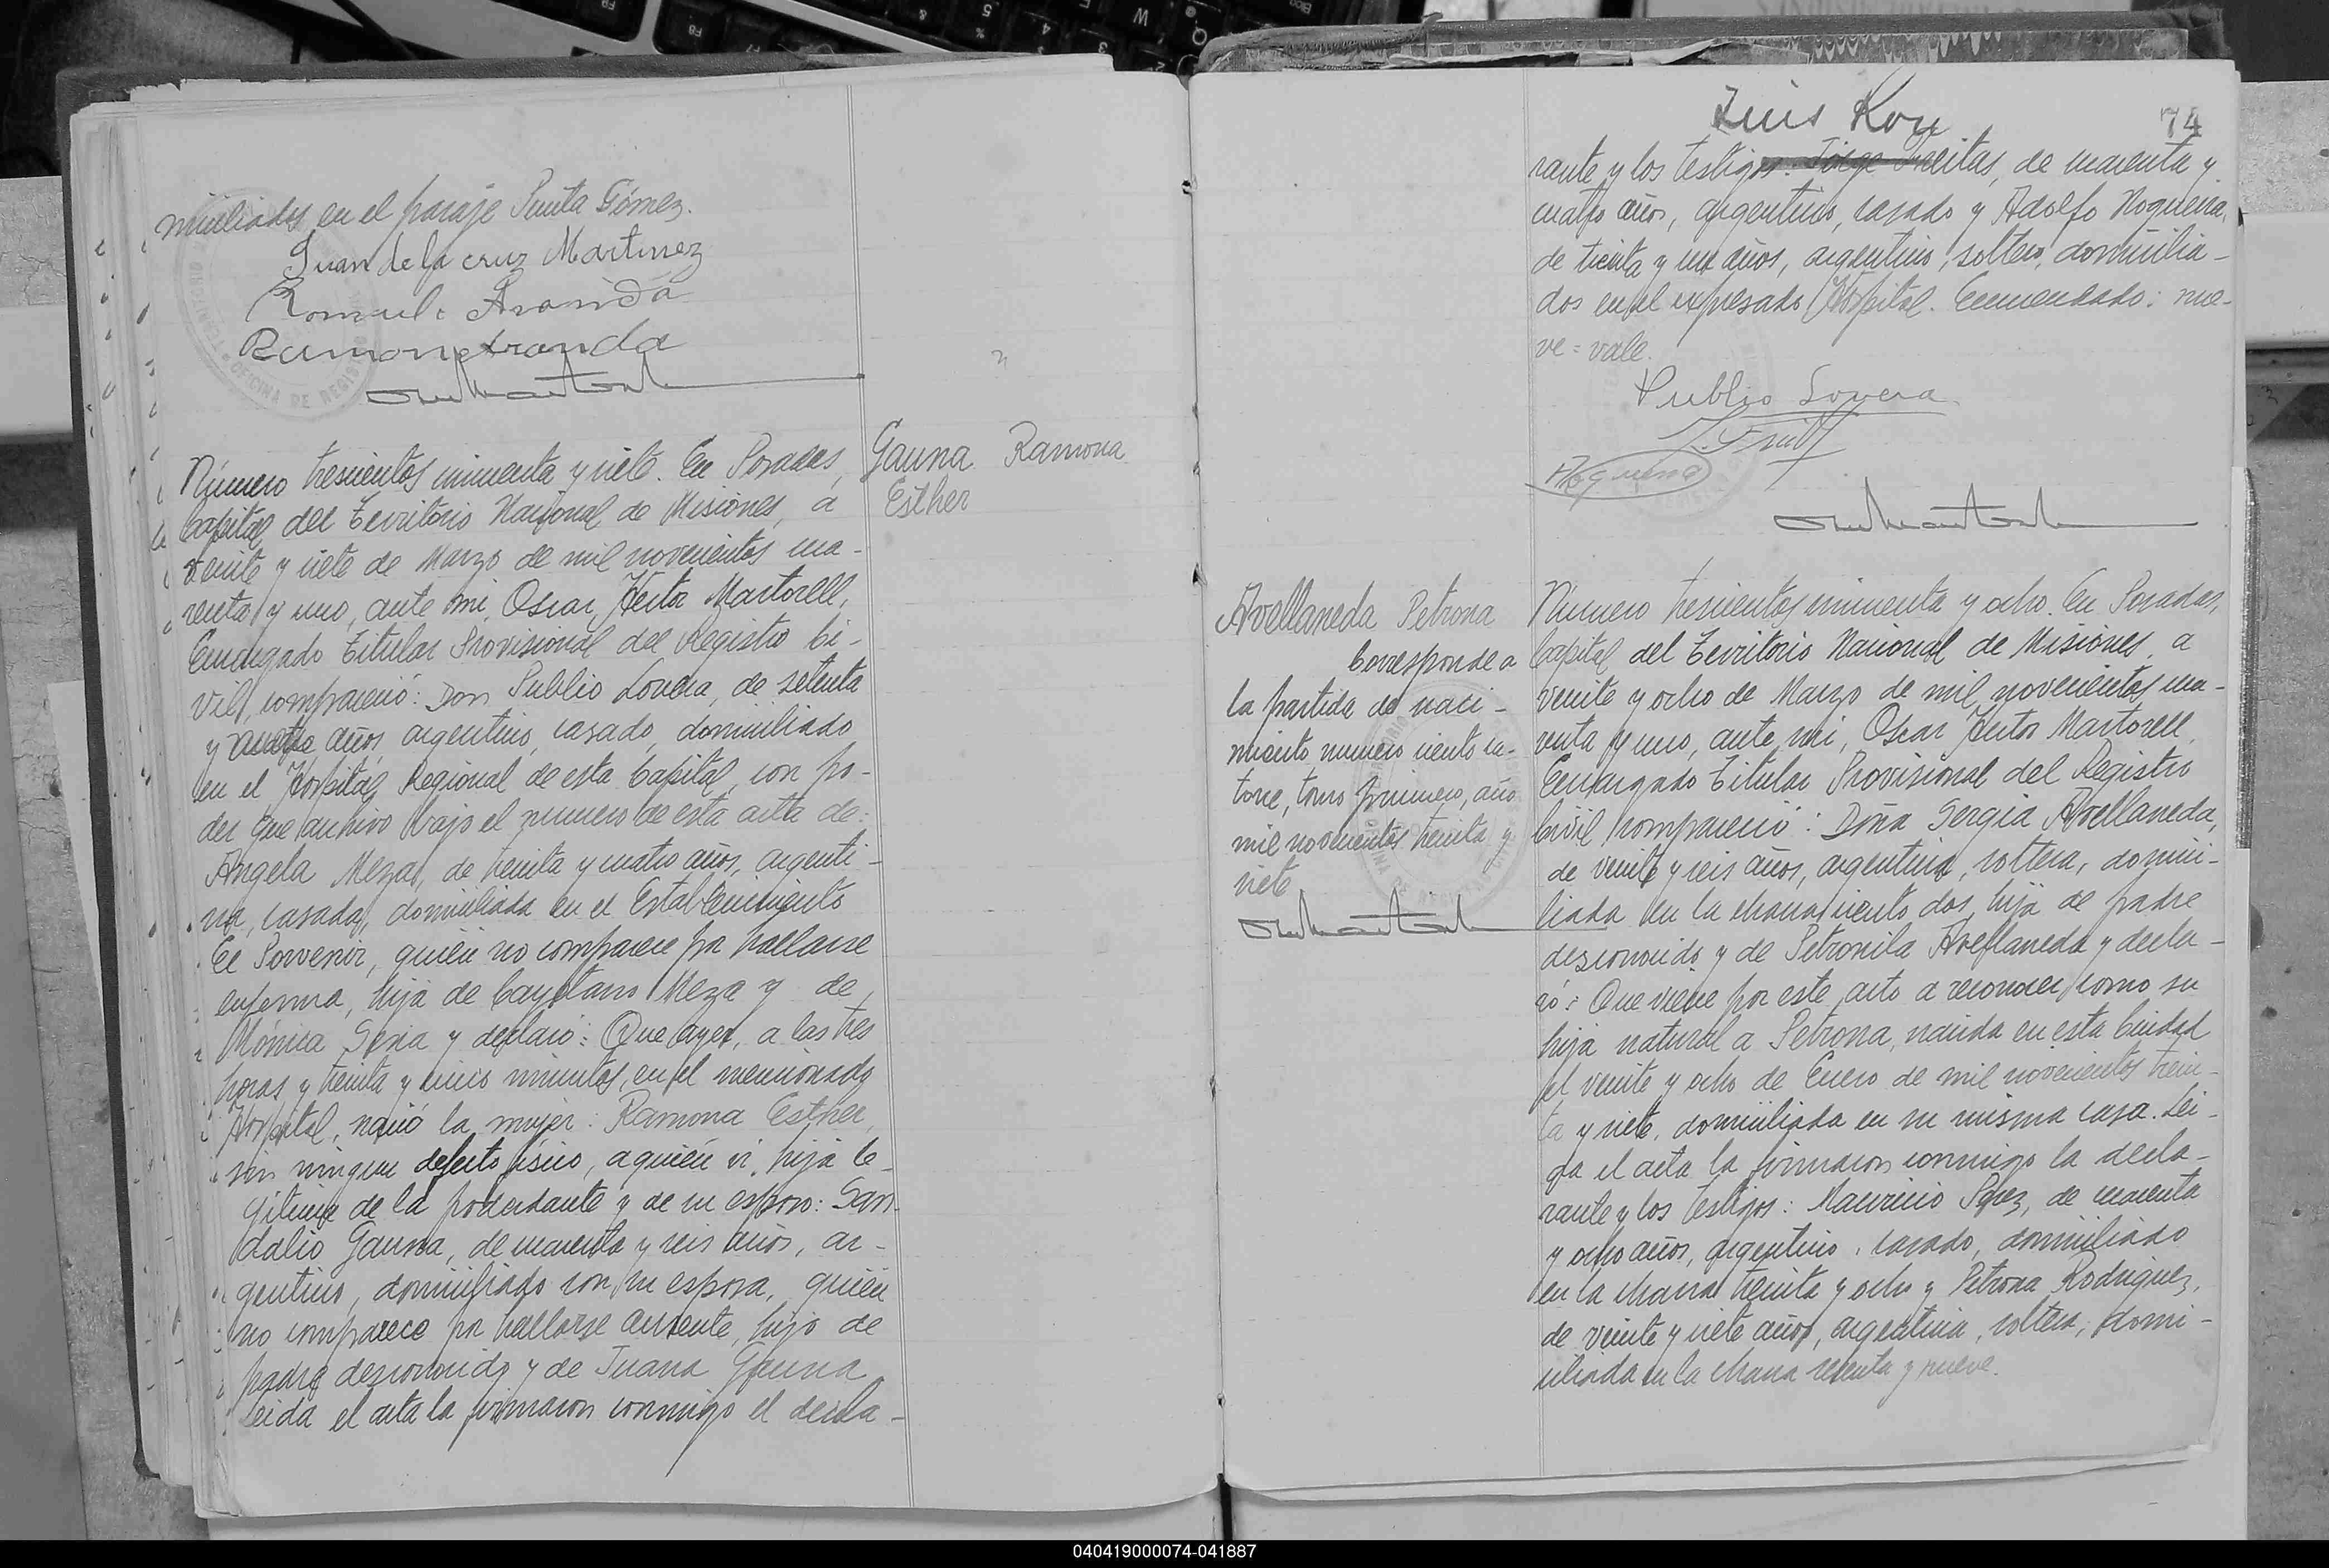 miciliados en el paraje Punta Gómez.
Juan de la cruz Martinez
Romulo Aranda
Ramon Aranda
Gauna Ramona
Esther
Número trescientos cincuenta y siete. En Posadas,
Capital del Territorio Nacional de Misiones, a
veinte y siete de Marzo de mil novecientos cua-
renta y uno, ante mi, Oscar Hector Martorell,
Encargado Titular Provisional del Registro Ci-
vil, compareció: Don Publio Lovera, de setenta
y cuatro años, argentino, casado, domiciliado
en el Hospital Regional de esta Capital, con po-
der que archivo bajo el numero de esta acta de:
Angela Meza, de treinta y cuatro años, argenti-
na, casada, domiciliada en el Establecimiento
El Porvenir, quién no comparece por hallarse
enferma, hija de Cayetano Meza y de
Mónica Seria y declaró: Que ayer, a las tres
horas y treinta y cinco minutos, en el mencionado
Hospital, nació la mujer: Ramona Esther,
sin ningun defecto físico, a quién vi, hija le-
gitima de la poderdante y de su esposo: San-
dalio Gauna, de cuarenta y seis años, ar-
gentino, domiciliado con su esposa, quién
no comparece por hallarse ausente, hijo de
padre desconocido y de Juana Gauna
Leida el acta la firmaron conmigo el decla-
74
Luis Koy
rante y los testigos: Jorge Freitas, de cuarenta y
cuatro años, argentino, casado y Adolfo Nogueira,
de treinta y un años, argentino, soltero, domicilia-
dos en el expresado Hospital. Enmendado: nue-
ve = vale.
Publio Lovera
Nogueira
Avellaneda Petrona
Corresponde a
la partida de naci-
miento numero ciento ca-
torce, tomo primero, año
mil novecientos treinta y
siete
Número trescientos cincuenta y ocho. En Posadas,
Capital del Territorio Nacional de Misiones, a
veinte y ocho de Marzo de mil novecientos cua-
renta y uno, ante mi, Oscar Hector Martorell,
Encargado Titular Provisional del Registro
Civil, compareció: Doña Sergia Avellaneda,
de veinte y seis años, argentina, soltera, domici-
liada en la chacra ciento dos, hija de padre
desconocido y de Petronila Avellaneda y decla-
ró: Que viene por este acto a reconocer como su
hija natural a Petrona, nacida en esta Ciudad
el veinte y ocho de Enero de mil novecientos trein-
ta y siete, domiciliada en su misma casa. Lei-
da el acta la firmaron conmigo la decla-
rante y los testigos: Mauricio Perez, de cuarenta
y ocho años, argentino, casado, domiciliado
en la chacra treinta y ocho y Petrona Rodriguez,
de veinte y siete años, argentina, soltera, domi-
ciliada en la chacra sesenta y nueve.
040419000074-041887